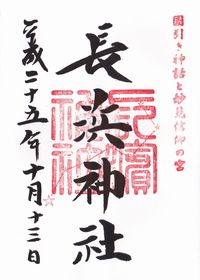 國引き神話と妙見信仰の宮
長浜神社
長濱
神社
平成二十五年十月十三日